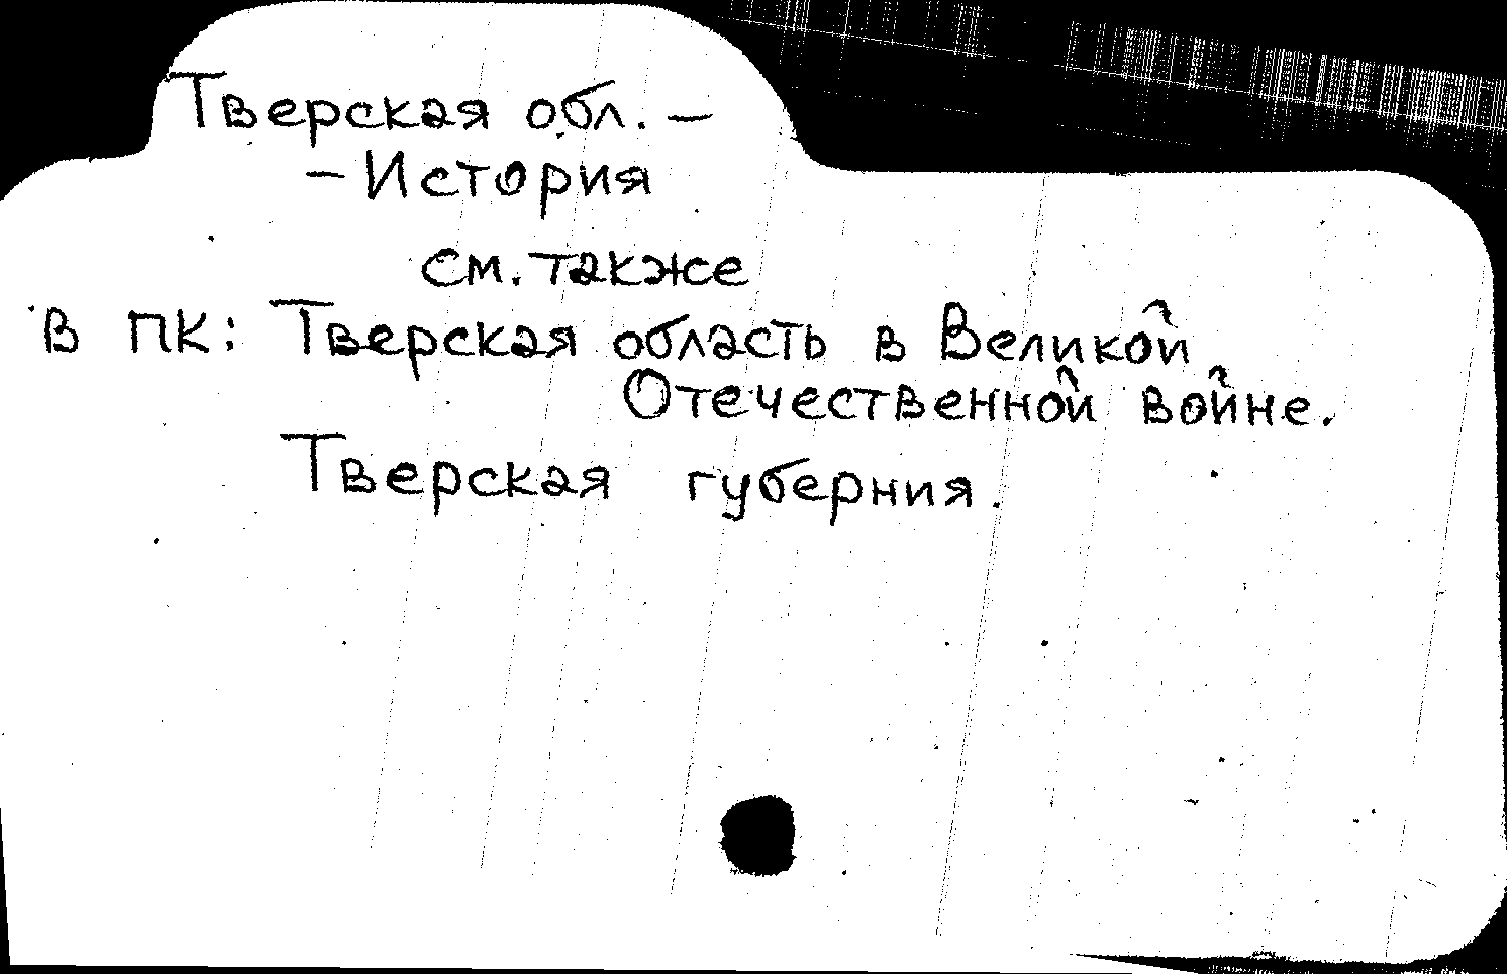 Тверская обл. –
– История
см. также
В ПК: Тверская область в Великой
Отечественной войне.
Тверская губерния.